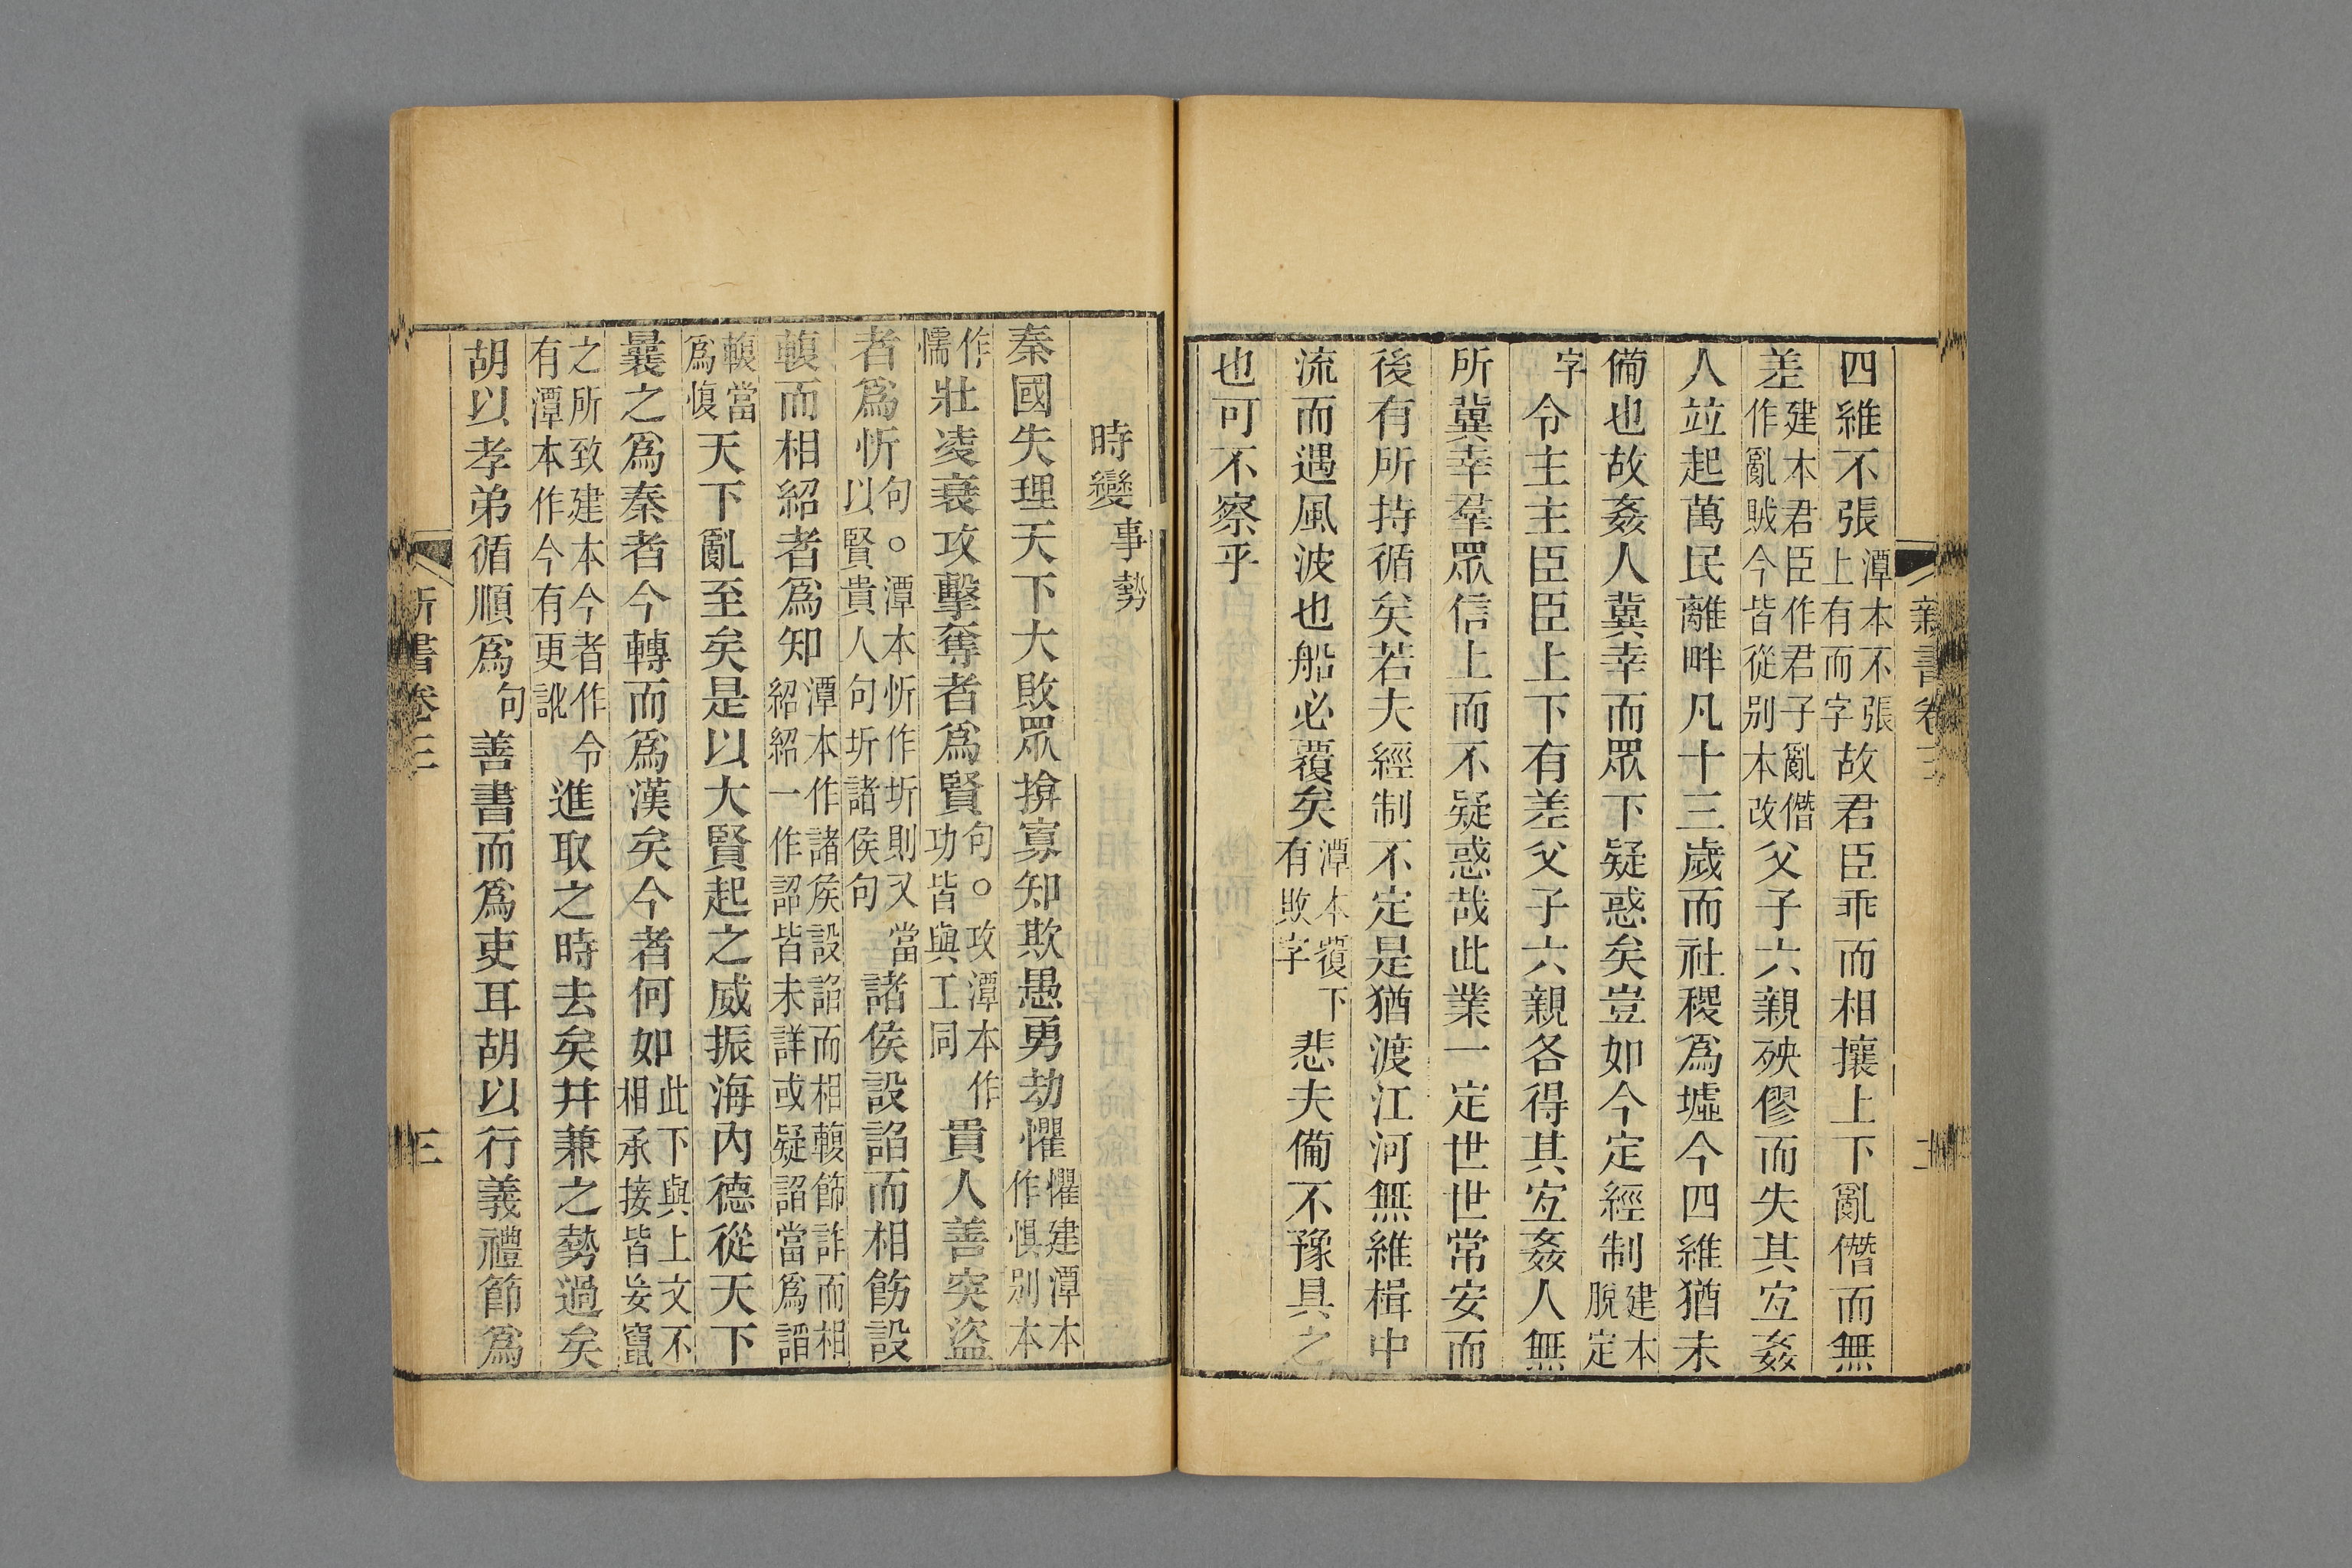 新書卷三
四維不張潭本不張上有而字故君臣乖而相攘上下亂僭而無
差建本君臣作君子亂僭作亂賊今皆從别本改父子六親殃僇而失其宜姦
人竝起萬民離畔凡十三歲而社稷爲墟今四維猶未
備也故姦人冀幸而眾下疑惑矣豈如今定經制建本脫定
字令主主臣臣上下有差父子六親各得其宜姦人無
所冀幸羣眾信上而不疑惑哉此業一定世世常安而
後有所持循矣若夫經制不定是猶渡江河無維楫中
流而遇風波也船必覆矣潭本覆下有敗字悲夫備不豫具之
也可不察乎
時變事勢
秦國失理天下大敗眾揜寡知欺愚勇劫懼懼建潭本作惧别本
作懦壯凌衰攻擊奪者爲賢句。攻潭本作功皆與工同貴人善突盜
者爲忻句。潭本忻作圻則又當以賢貴人句圻諸侯句諸侯設諂而相飭設
輹而相紹者爲知潭本作諸侯設諂而相輹飾詐而相紹紹一作詔皆未詳或疑詔當爲謟
輹當爲愎天下亂至矣是以大賢起之威振海內德從天下
曩之爲秦者今轉而爲漢矣今者何如此下與上文不相承接皆妄竄
之所致建本今者作令有潭本作今有更訛進取之時去矣并兼之勢過矣
胡以孝弟循順爲句善書而爲吏耳胡以行義禮節爲
新書卷三
三